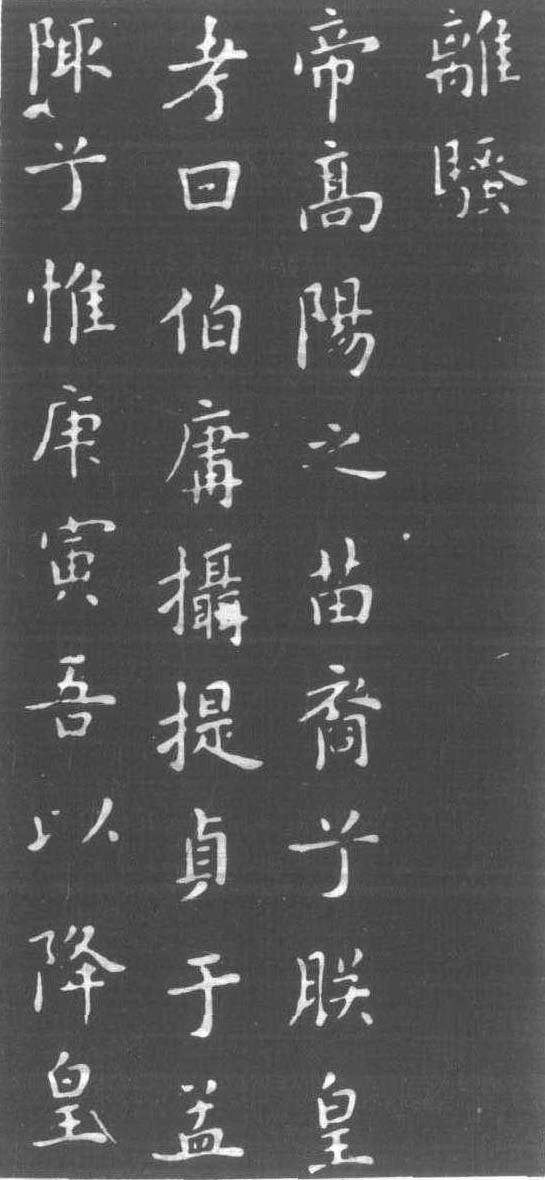 離騷
帝高陽之苗裔兮朕皇
考曰伯庸攝提貞于孟
陬兮惟庚寅吾以降皇